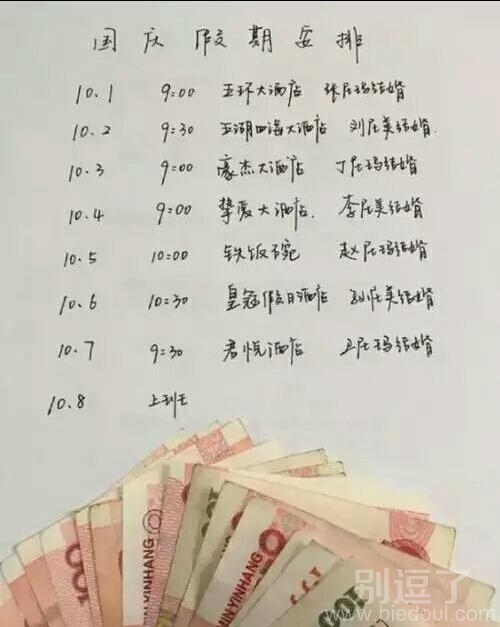 国庆假期安排
10.1 9:00 五环大酒店 张屁玛结婚
10.2 9:30 五湖四海大酒店 刘屁美结婚.
10.3 9:00 豪杰大酒店 丁屁玛结婚
10.4 9:00 挚爱大酒店. 李屁美结婚
10.5 10:00 铁饭不宛 赵屁玛结婚
10.6 10:30 皇冠假日酒店 孙屁美结婚
10.7 9:30 君悦酒店 卫屁玛结婚
10.8 上班
100
YINHANG
100
100
N YINHANG
100
别逗了
www.biedoul.com